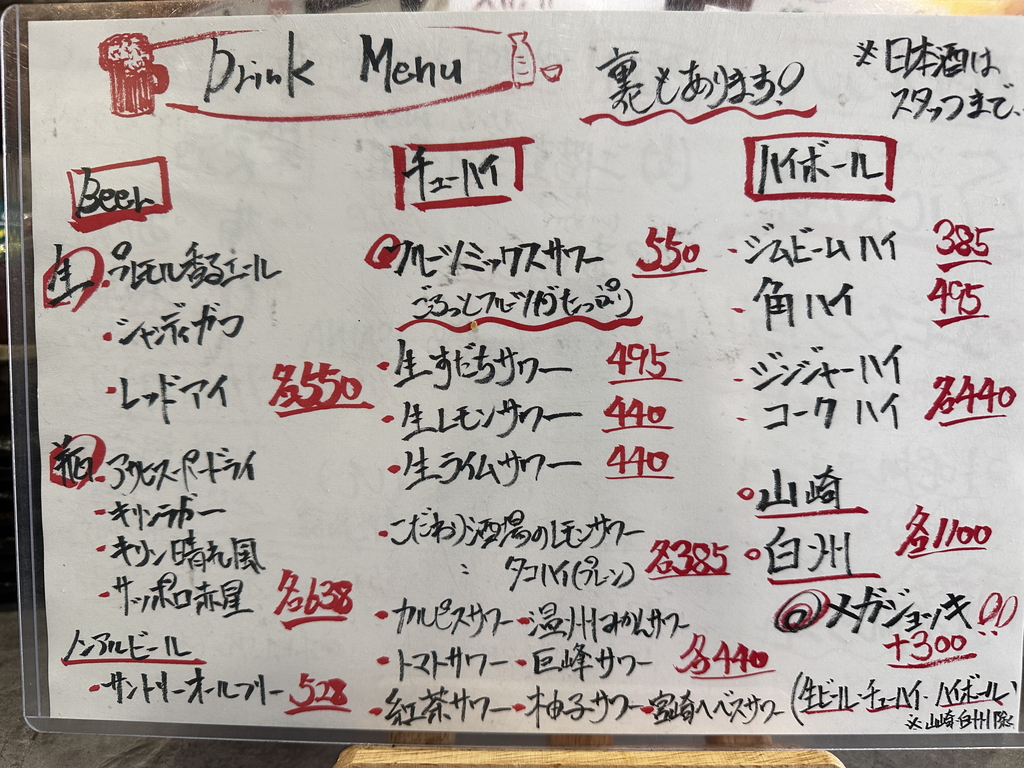 Drink Menu
裏もあります!
※日本酒は
スタッフまで、
Beer
生
・プレモル香るエール
・シャンディガフ
・レッドアイ 各550
瓶
・アサヒスーパードライ
・キリンラガー
・キリン晴れ風
・サッポロ赤星 各638
ノンアルビール
・サントリーオールフリー 528
チューハイ
フルーツミックスサワー 550
ごろっとフルーツがたっぷり
・生すだちサワー 495
・生レモンサワー 440
・生ライムサワー 440
・こだわり酒場のレモンサワー
: タコハイ(プレーン) 各385
・カルピスサワー ・温州みかんサワー
・トマトサワー ・巨峰サワー 各440
・紅茶サワー ・柚子サワー ・宮崎へべスサワー
ハイボール
・ジムビームハイ 385
・角ハイ 495
・ジンジャーハイ
・コークハイ 各440
○山崎
○白州 各1100
◎メガジョッキ!!
+300
(生ビール・チューハイ・ハイボール)
※山崎白州除く